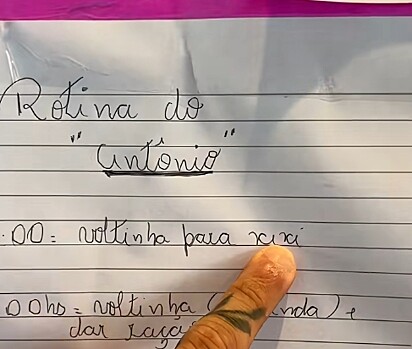 Rotina do
"Antônio"
:00 = voltinha para xixi
00hs = voltinha ( nda) e
dar ração